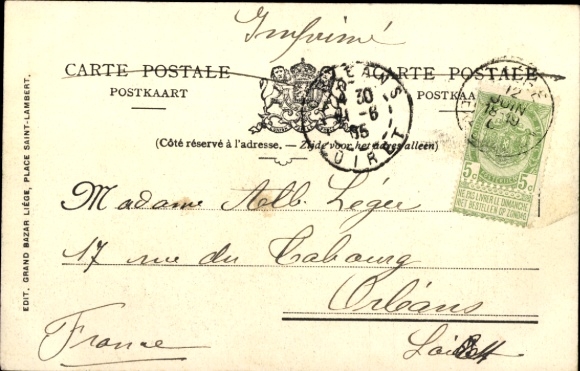 Imprimé
CARTE POSTALE CARTE POSTALE
POSTKAART POSTKAART
(Côté réservé à l'adresse. — Zijde voor het adres alleen)
ORLEANS
30
-6
05
LOIRET
12
JUIN
5c 5c
NE PAS LIVRER LE DIMANCHE
NIET BESTELLEN OP ZONDAG
Madame Alb. Léger
17 rue du Cabourg
Orléans
France
Loiret
EDIT. GRAND BAZAR LIÉGE, PLACE SAINT-LAMBERT.